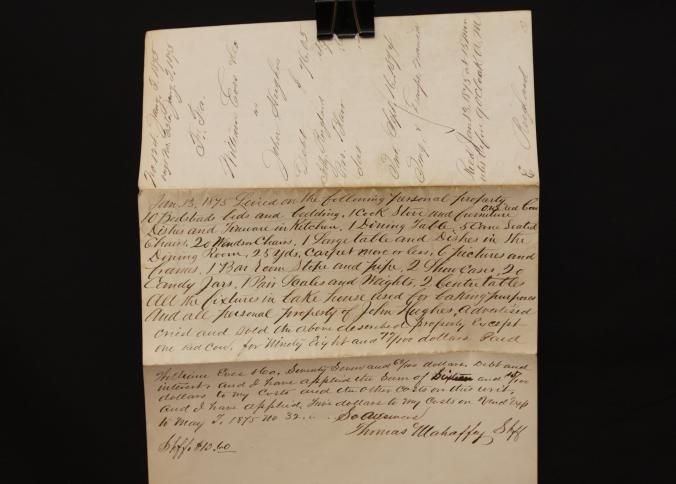 Jan. 13, 1875 Levied on the following personal property
one red Cow
10 Bedsteads beds and bedding, 1 Cook Stove and furniture
Dishes and Tinware in Kitchen, 1 Dining Table, Cane Seated
Chairs, 20 Windsor Chairs, 1 Large table and Dishes in the
Dining Room, 25 yds, carpet more or less, 6 pictures and
frames, 1 Bar Room Stove and pipe, 2 Show Cases, 20
Candy Jars, 1 Pair Scales and Weights, 2 Centre tables
All the fixtures in bake house used for baking purposes
And all personal property of John Hughes, Advertised
cried and sold the above described property Except
one red Cow, for Ninety Eight and /100 dollars Paid
William Eves & Co, Seventy Seven and /100 dollars, Debt and
interest and I have applied the Sum of and /100
dollars to my Costs and the other costs on this writ
And I have applied five dollars to my Costs on Vend Exp
to May T, 1875 No 32. So answers
Thomas Mahaffey Shff
Shff. $12.60
No May T, 1875
Fi. Fa.
William Eves & Co
vs
John Hughes
Debt $76.05
Int.
Pro.
Sept 16, 1874
Recd Jan 12, 1875 at
before 9 o'clock A. M.